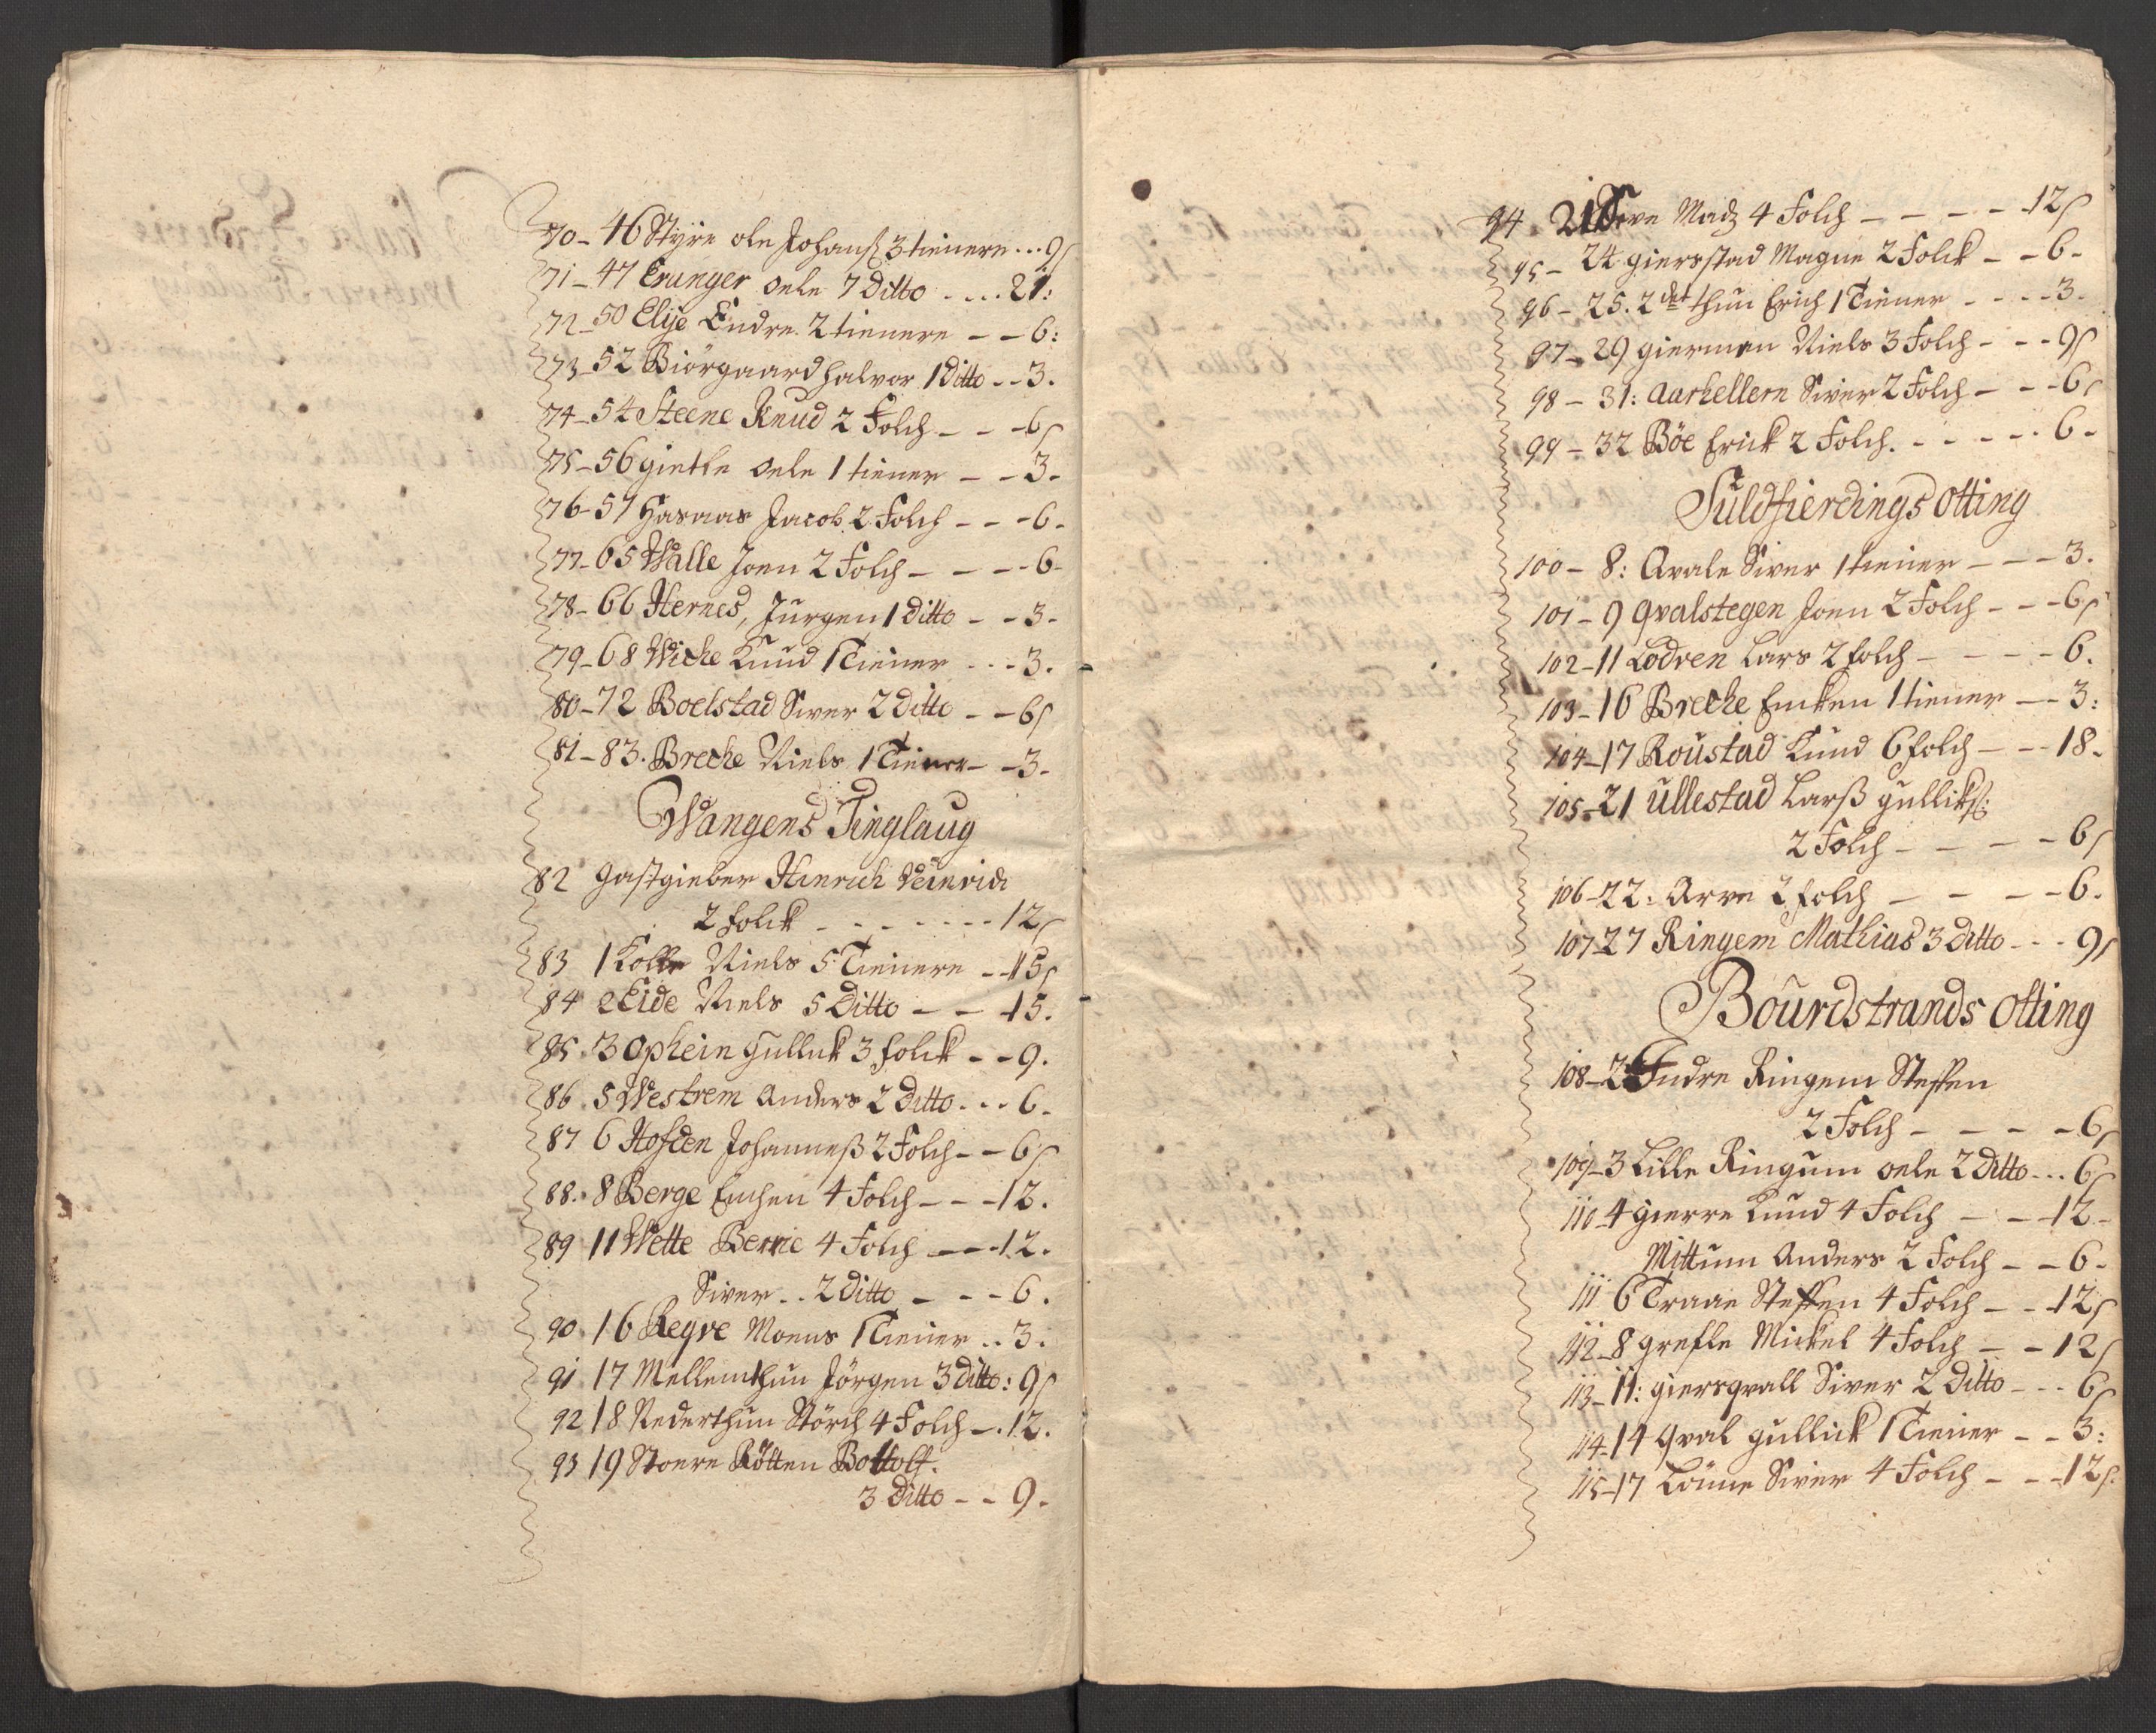 70 - 46 Styre ole Johanß 3 tienere ... 9ß
71 - 47 Erunger oele 7 Ditto .... 21:
72 - 50 Elye Endre 2 tienere - - 6:
73 - 52 Biörgaard halvor 1 Ditto - - 3.
74 - 54 Steene Knud 2 Folch - - - 6ß
75 - 56 gietle oele 1 tiener - - 3-
76 - 57 Hasaas Jacob 2 Folch - - - 6-
77 - 65 Walle Joen 2 Folch - - - - 6-
78 - 66 Hernes, Jurgen 1 Ditto - - 3-
79 - 68 Wiche Knud 1 Tiener - - - 3.
80 - 72 Boelstad Siver 2 Ditto - - 6ß
81 - 83. Breche Niels 1 Tiener - - 3-
Wangens Tinglaug
82 gastgieber Hinrich Weinrich
2 folck - - - - - - - 12ß
83 1 Kolle Niels 5 Tienere - - 15ß
84 2 Eide Niels 5 Ditto - - 15.
85. 3 Ophein Gulluk 3 folck - - 9.
86. 5 Westrem Anders 2 Ditto - - - 6-
87 6 Hofden Johanneß 2 Folch - - 6ß
88. 8 Berge Enchen 4 Folch - - - 12.
89 11 Wette Berrie 4 Folch - - - 12.
Siver - - 2 Ditto - - - 6.
90. 16 Reqve Moens 1 Tiener - - 3.
91 17 Mellemthun Jörgen 3 Ditto: 9ß
92 18 Nederthun Störch 4 Folch - - 12.
93 19 Stoere Rötten Bottolf.
3 Ditto - - 9-
94 21 Teve Madz 4 Folch - - - - 12ß
95 - 24 giersstad Magne 2 Folck - - 6-
96 - 25. 2det thun Erich 1 Tiener - - - - 3-
97 - 29 giermen Niels 3 Folch - - - 9ß
98 - 31: Aarhellern Siver 2 Folch - - - 6ß
99 - 32 Böe Erick 2 Folch. - - - - - 6-
Fuldfierdings Otting
100 - 8: Qvale Siver 1 tiener - - - 3.
101 - 9 qvalstegen Joen 2 Folch - - - 6ß
102 - 11 Lodven Lars 2 folch - - - - 6.
103 - 16 Breche Encken 1 tiener - - - 3:
104 - 17 Roustad Knud 6 folch - - - 18-
105 - 21 Ullestad Larß gullikß:
2 Folch - - - - 6ß
106 - 22: Arve 2 folch - - - - 6.
107 - 27 Ringem Mathias 3 Ditto - - - 9ß
Bourdstrands Otting
108 - 2 Indre Ringem Steffen
2 Folch - - - - 6ß
109 - 3 Lille Ringum oele 2 Ditto - - - 6ß
110 - 4 gierre Knud 4 Folch - - - 12-
Mittum Anders 2 Folch - - 6-
111 6 Traae Steffen 4 Folch - - - 12ß
112 - 8 grefle Mickel 4 Folch - - 12ß
113 - 11: giersqvall Siver 2 Ditto - - - 6ß
114 - 14 qval gullick 1 Tiener - - 3:
115 - 17 Lönne Siver 4 Folch - - - 12ß